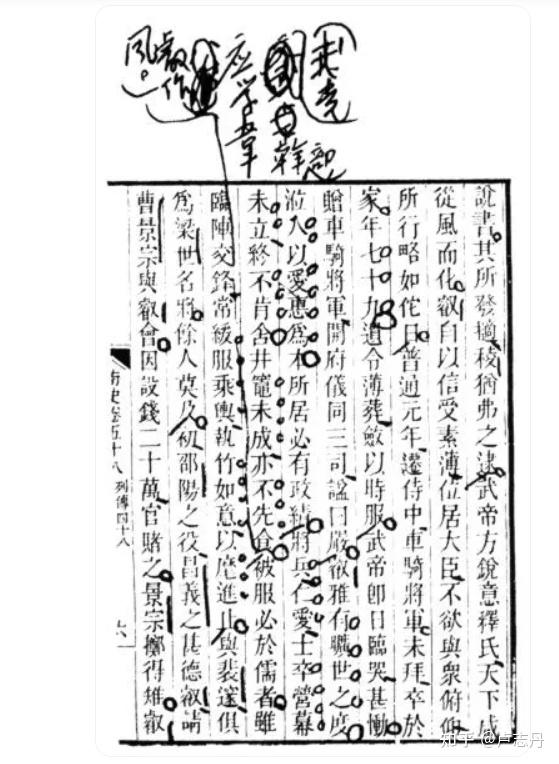 我党
幹部
应学韋
叡作
風。
說書其所發擿稜猶弗之逮武帝方銳意釋氏天下咸
從風而化叡自以信受素薄位居大臣不欲與衆俯仰
所行略如佗日普通元年遷侍中車騎將軍未拜卒於
家年七十九遺令薄葬斂以時服武帝卽日臨哭甚慟
贈車騎將軍開府儀同三司諡曰嚴叡雅有曠世之度
涖人以愛惠爲本所居必有政績將兵仁愛士卒營幕
未立終不肯舍井竈未成亦不先食被服必於儒者雖
臨陣交鋒常緩服乘輿執竹如意以麾進止與裴邃俱
爲梁世名將餘人莫及初邵陽之役昌義之甚德叡請
曹景宗與叡會因設錢二十萬官賭之景宗擲得雉叡
南史卷五十八 列傳四十八
知乎 @卢志丹